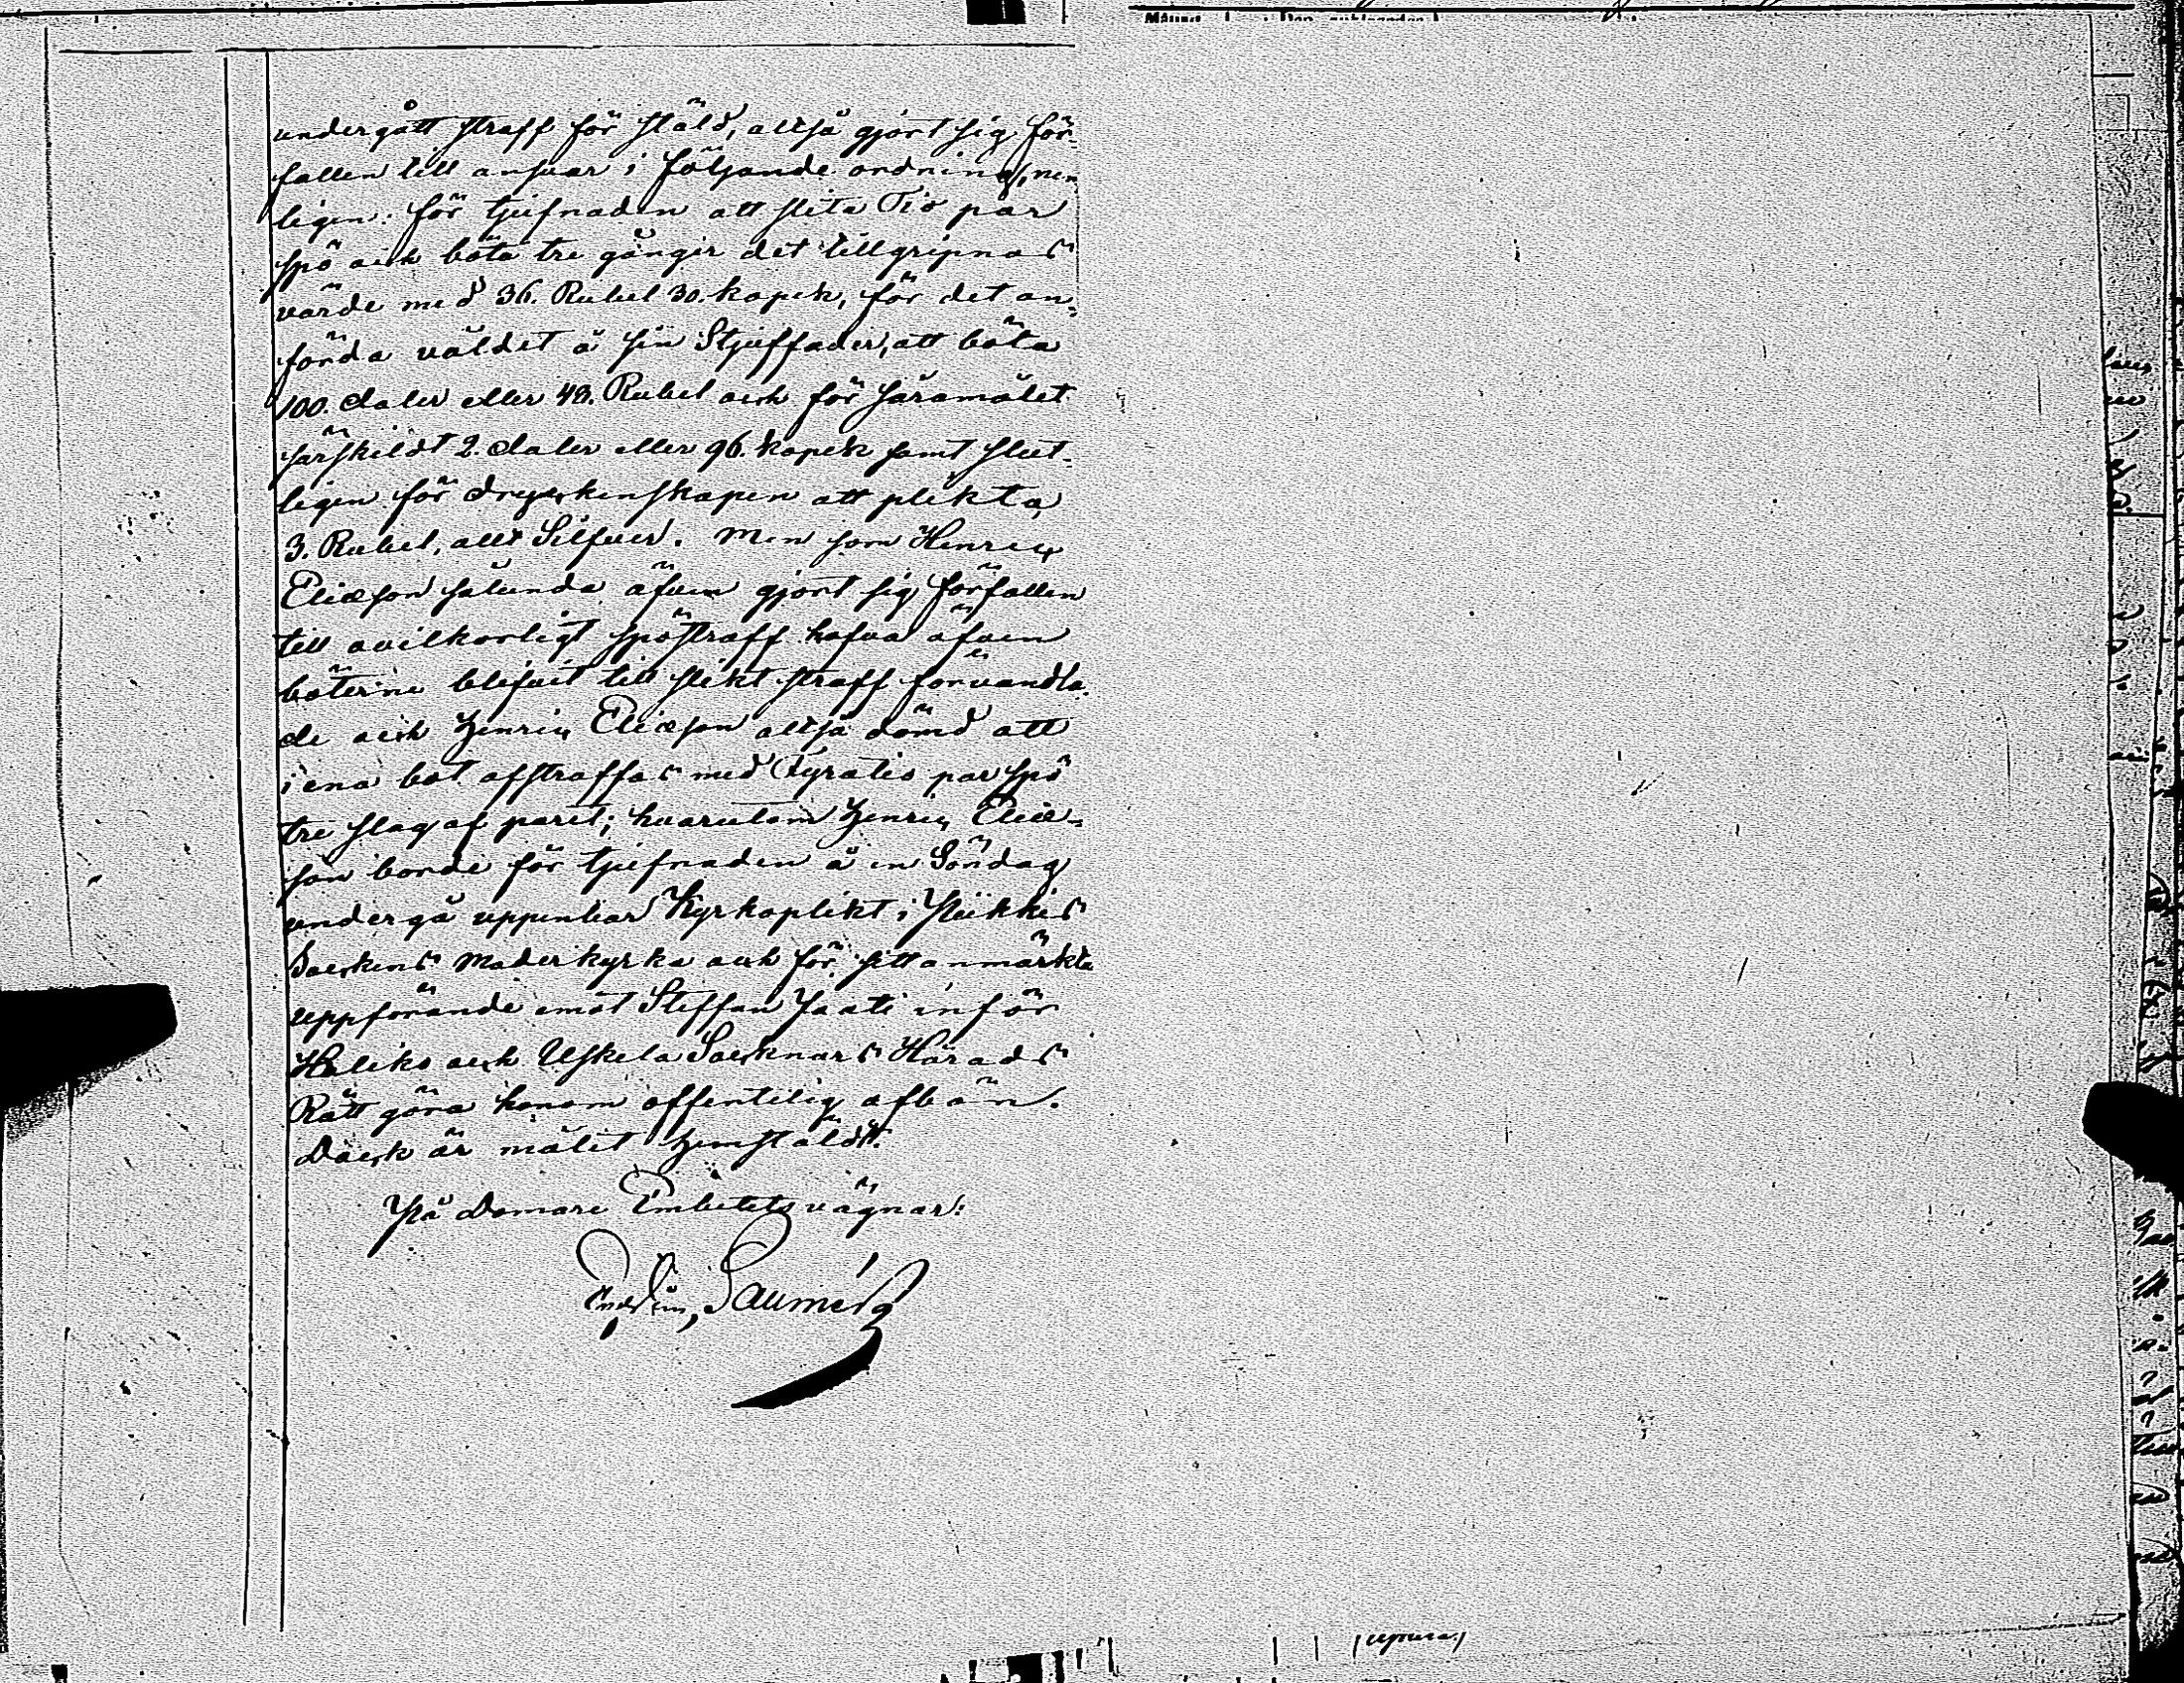 undergått straff för stöld, alltså gjort sig för-
fallen till ansvar i följande ordning, nem
ligen: för tjufnaden att slita Tio par
spö och böta tre gånger det tillgripnas
värde med 36. Rubel 30. kopek, för det an-
förda våldet å sin Stjuffader, att böta
100. daler eller 48. Rubel och för såramålet
särskildt 2. daler eller 96. kopek samt slut-
ligen för dryckenskapen att plikta
3. Rubel, allt Silfver. Men som Henric
Eliæson sålunda äfven gjort sig förfallen
till ovilkorligt spöstraff hafva äfven
böterne blifvit till slikt straff förvandla
de och Henric Eliæson altså dömd att
i ena bot afstraffas med Fyratio par spö
tre slag af paret; hvarutom Henric Eliæ-
son borde för tjufnaden å en Söndag
undergå uppenbar Kyrkoplikt i Pikkis
Sockens Moderkyrka och för sitt anmärkta
uppförande emot Steffan Jaati inför
Haliko och Uskela Socknars Härads
Rätt göra honom offentelig afbön.
Dock är målet hemstäldt.
På Domare Embetets vägnar: